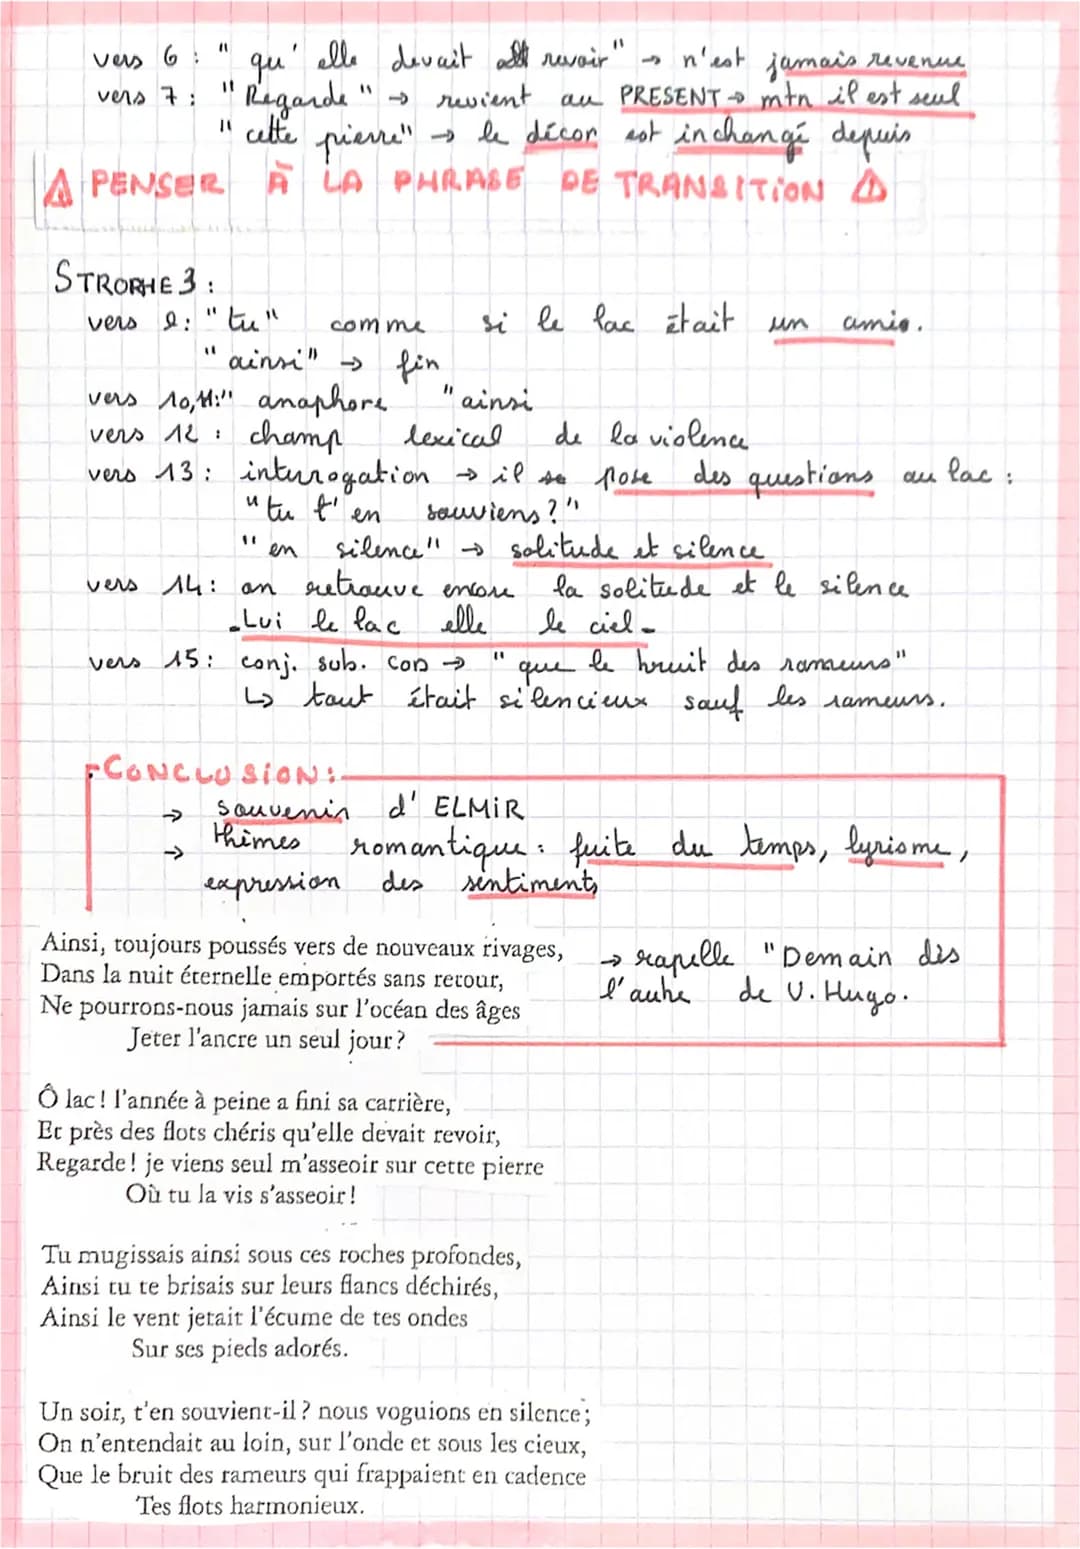 vers 6 : " qu' elle devait revoir" → n'est jamais revenue
vers 7 : " Regarde " → revient au PRESENT → mtn il est seul
" cette pierre" → le décor est inchangé depuis
⚠ PENSER À LA PHRASE DE TRANSITION ⚠
STROPHE 3 :
vers 9: " tu" comme si le lac était un amis.
" ainsi" → fin
vers 10,11:" anaphore "ainsi
vers 12 : champ lexical de la violence
vers 13 : interrogation → il se pose des questions au lac :
"tu t'en souviens ?"
" en silence" → solitude et silence
vers 14 : on retrouve encore la solitude et le silence
.Lui le lac elle le ciel.
vers 15 : conj. sub. COD → " que le bruit des rameurs"
↳ tout était silencieux sauf les rameurs.
CONCLUSION :
→ souvenir d' ELMIR
→ thèmes romantique : fuite du temps, lyrisme,
expression des sentiments
→ rapelle "Demain dès
l'aube de V. Hugo.
Ainsi, toujours poussés vers de nouveaux rivages,
Dans la nuit éternelle emportés sans retour,
Ne pourrons-nous jamais sur l'océan des âges
Jeter l'ancre un seul jour?
Ô lac! l'année à peine a fini sa carrière,
Et près des flots chéris qu'elle devait revoir,
Regarde! je viens seul m'asseoir sur cette pierre
Où tu la vis s'asseoir!
Tu mugissais ainsi sous ces roches profondes,
Ainsi tu te brisais sur leurs flancs déchirés,
Ainsi le vent jetait l'écume de tes ondes
Sur ses pieds adorés.
Un soir, t'en souvient-il? nous voguions en silence;
On n'entendait au loin, sur l'onde et sous les cieux,
Que le bruit des rameurs qui frappaient en cadence
Tes flots harmonieux.